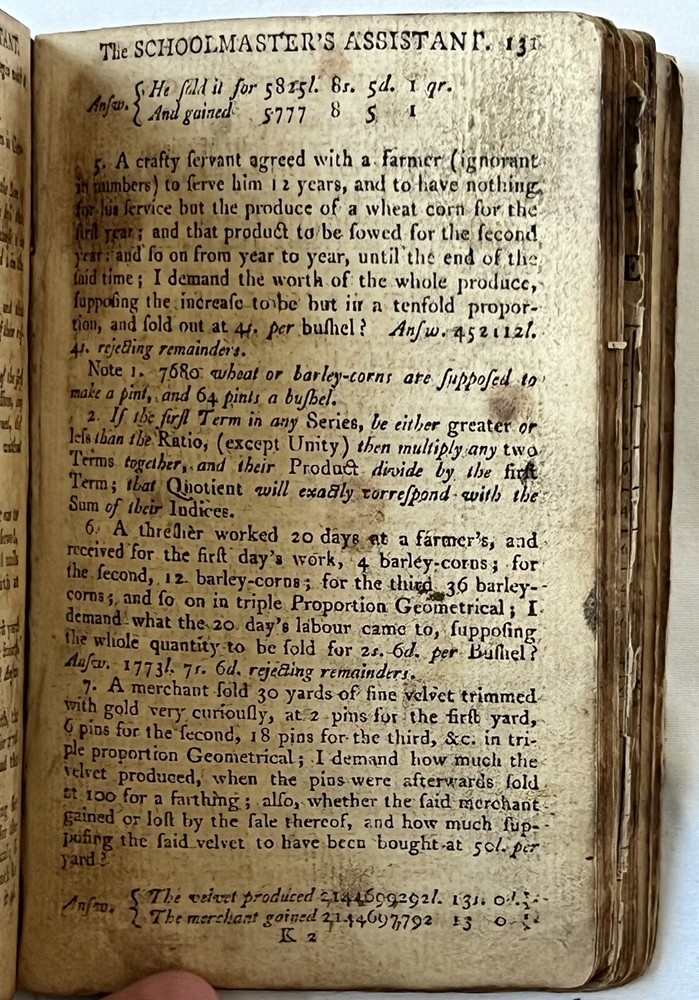 The SCHOOLMASTER'S ASSISTANT. 131
Anſw. { He ſold it for 5825l. 8s. 5d. 1 qr.
And gained 5777 8 5 1
5. A crafty ſervant agreed with a farmer (ignorant
in numbers) to ſerve him 12 years, and to have nothing
for his ſervice but the produce of a wheat corn for the
firſt year; and that product to be ſowed for the ſecond
year: and ſo on from year to year, until the end of the
ſaid time; I demand the worth of the whole produce,
ſuppoſing the increaſe to be but in a tenfold propor-
tion, and ſold out at 4s. per buſhel? Anſw. 452112l.
4s. rejecting remainders.
Note 1. 7680 wheat or barley-corns are ſuppoſed to
make a pint, and 64 pints a buſhel.
2. If the firſt Term in any Series, be either greater or
leſs than the Ratio, (except Unity) then multiply any two
Terms together, and their Product divide by the firſt
Term; that Quotient will exactly correſpond with the
Sum of their Indices.
6. A threſher worked 20 days at a farmer's, and
received for the firſt day's work, 4 barley-corns; for
the ſecond, 12 barley-corns; for the third 36 barley-
corns; and ſo on in triple Proportion Geometrical; I
demand what the 20 day's labour came to, ſuppoſing
the whole quantity to be ſold for 2s. 6d. per Buſhel?
Anſw. 1773l. 7s. 6d. rejecting remainders.
7. A merchant ſold 30 yards of fine velvet trimmed
with gold very curiouſly, at 2 pins for the firſt yard,
6 pins for the ſecond, 18 pins for the third, &c. in tri-
ple proportion Geometrical; I demand how much the
velvet produced, when the pins were afterwards ſold
at 100 for a farthing; alſo, whether the ſaid merchant
gained or loſt by the ſale thereof, and how much ſup-
poſing the ſaid velvet to have been bought at 50l. per
yard?
Anſw. { The velvet produced 2144699292l. 13s. 0
The merchant gained 2144697792 13 0
K 2